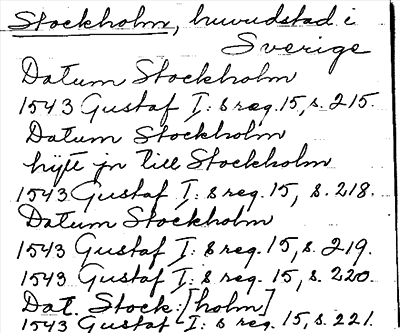 Stockholm, huvudstad i
Sverige
Datum Stockholm
1543 Gustaf I: s reg. 15, s. 215.
Datum Stockholm
hijtt jn till Stockholm
1543 Gustaf I: s reg. 15, s. 218.
Datum Stockholm
1543 Gustaf I: s reg. 15, s. 219.
1543 Gustaf I: s reg. 15, s. 220.
Dat. Stock: [holm]
1543 Gustaf I: s reg. 15, s. 221.